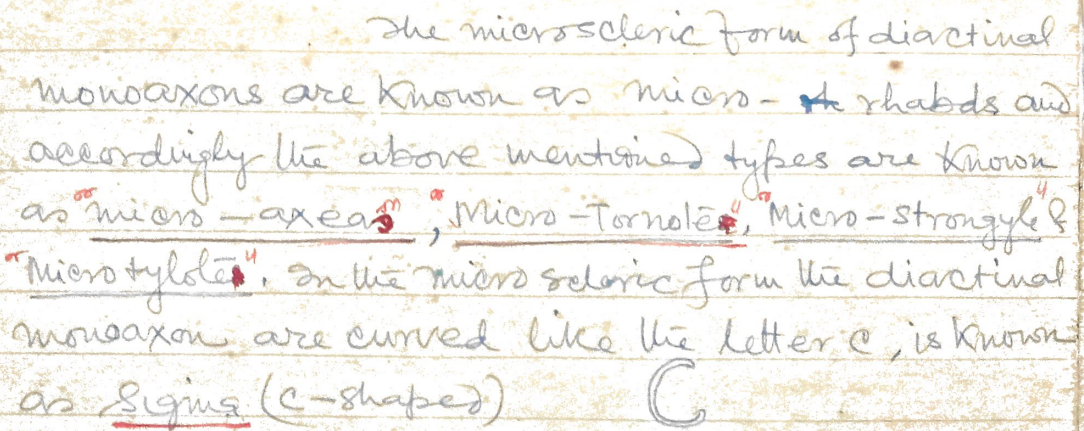 The microscleric form of diactinal
monoaxons are known as micro- rhabds and
accordingly the above mentioned types are known
as "micro-axeas", "Micro-Tornote", "Micro-strongyle" &
"Microtylote". In the micro scleric form the diactinal
monoaxon are curved like the letter c, is known
as Sigma (c-shaped) C